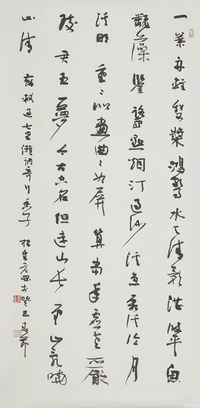 一葉舟輕雙槳鴻驚水天清影湛波平魚
翻藻鑒鷺點煙汀過沙溪急霜溪冷月
溪明重重似畫曲曲如屏算當年虛老嚴
陵君臣一夢今古空名但遠山長雲山亂曉
山青
蘇軾過七里瀨詞寄行香子
癸巳